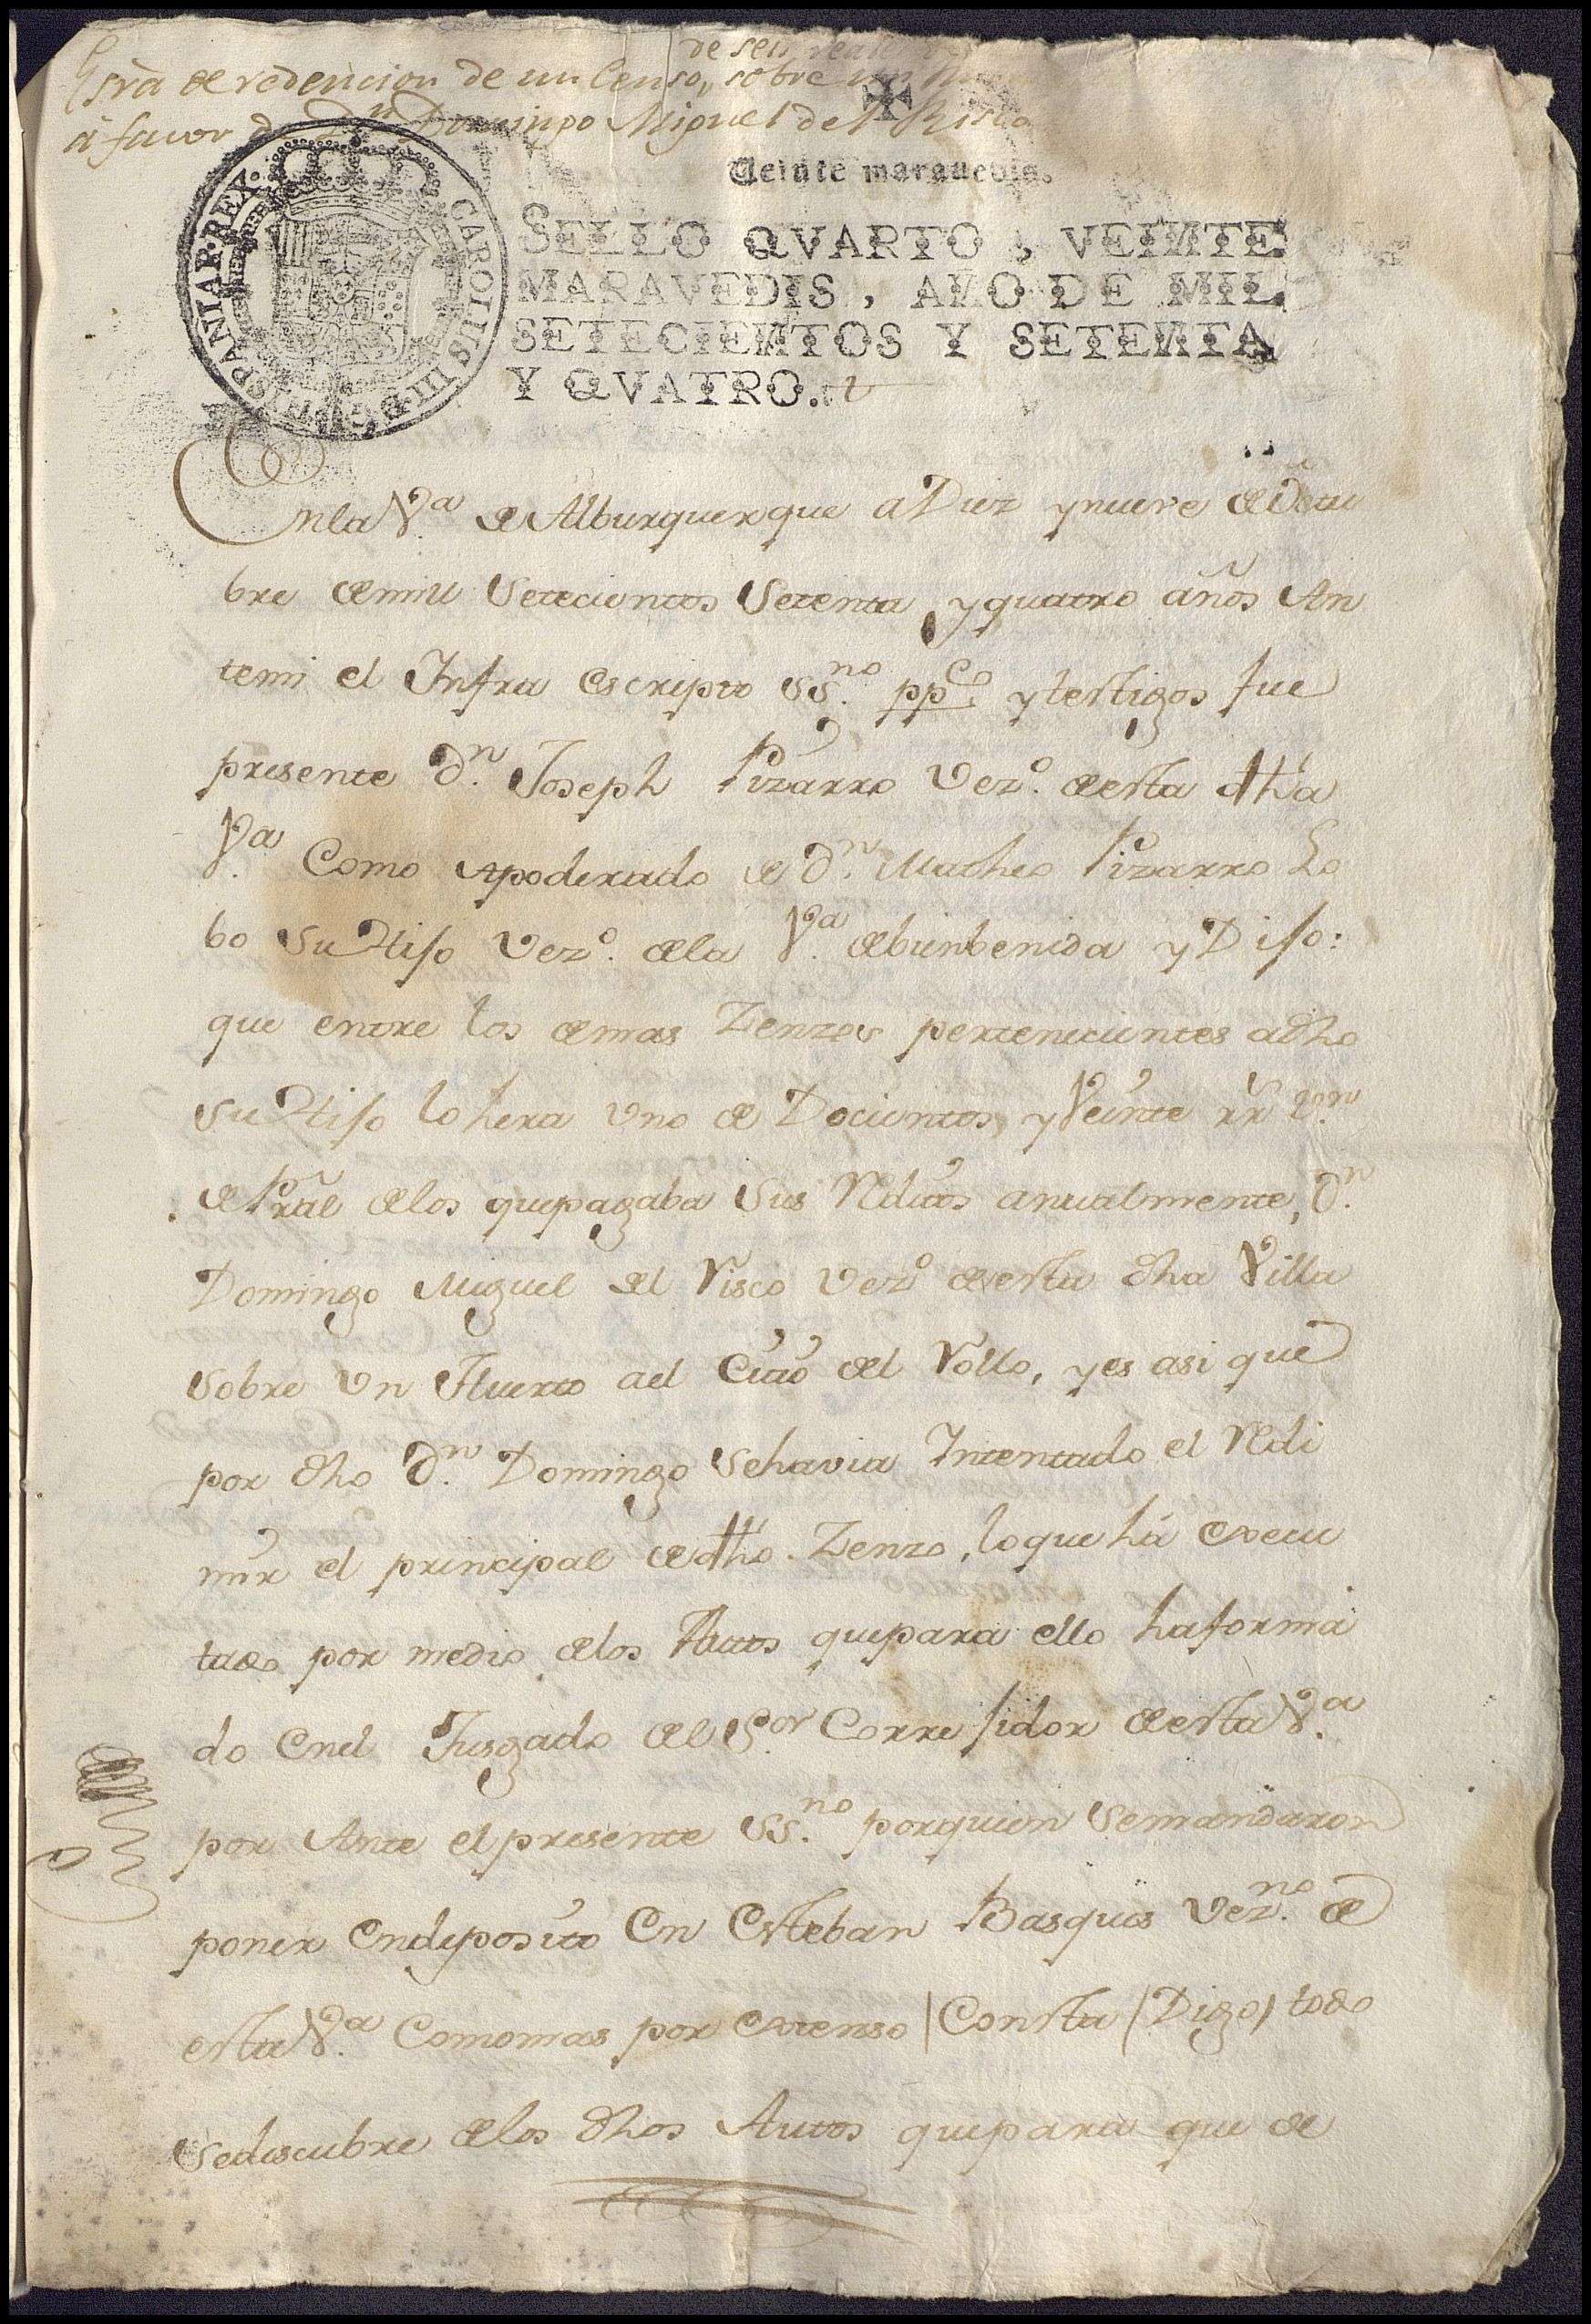 de seis reales
Essra de redencion de un Censo, sobre un
á favor de Dn Domingo Miguel del Risco
Veinte marauedis.
SELLO QVARTO, VEINTE
MARAVEDIS, AÑO DE MIL
SETECIENTOS Y SETENTA
Y QVATRO.
CAROLUS III D G HISPANIAR REX
Enla Va de Alburquerque a Diez ynueve de Octu
bre de mill Setecientos Setenta, yquatro años An
temi el Infra escripto ssno ppco ytestigos fue
presente Dn Joseph Pizarro Vezo desta dha
Va Como Apoderado de Dn Matheo Pizarro Lo
bo su Hijo Vezo dela Va debienbenida y Dijo:
que entre los demas Zenzos pertenecientes adho
su Hijo lo hera Uno de Docientos, yVeinte rr von
de Pral delos quepagaba sus Reditos anualmente, Dn
Domingo Miguel del Risco Vezo deesta dha Villa
sobre Un Huerto ael Citio del Rollo, yes asi que
por dho Dn Domingo sehavia Intentado el Redi
mir el principal de dho Zenzo, loque há execu
tado por medio delos Autos quepara ello haforma
do Enel Jusgado del Sor Corregidor deesta Va
por Ante elpresente ssno porquien semandaron
poner Endeposito En Esteban Basques Vezno de
esta Va Comomas por extenso (Consta (Digo) todo
sedescubre delos dhos Autos quepara que de